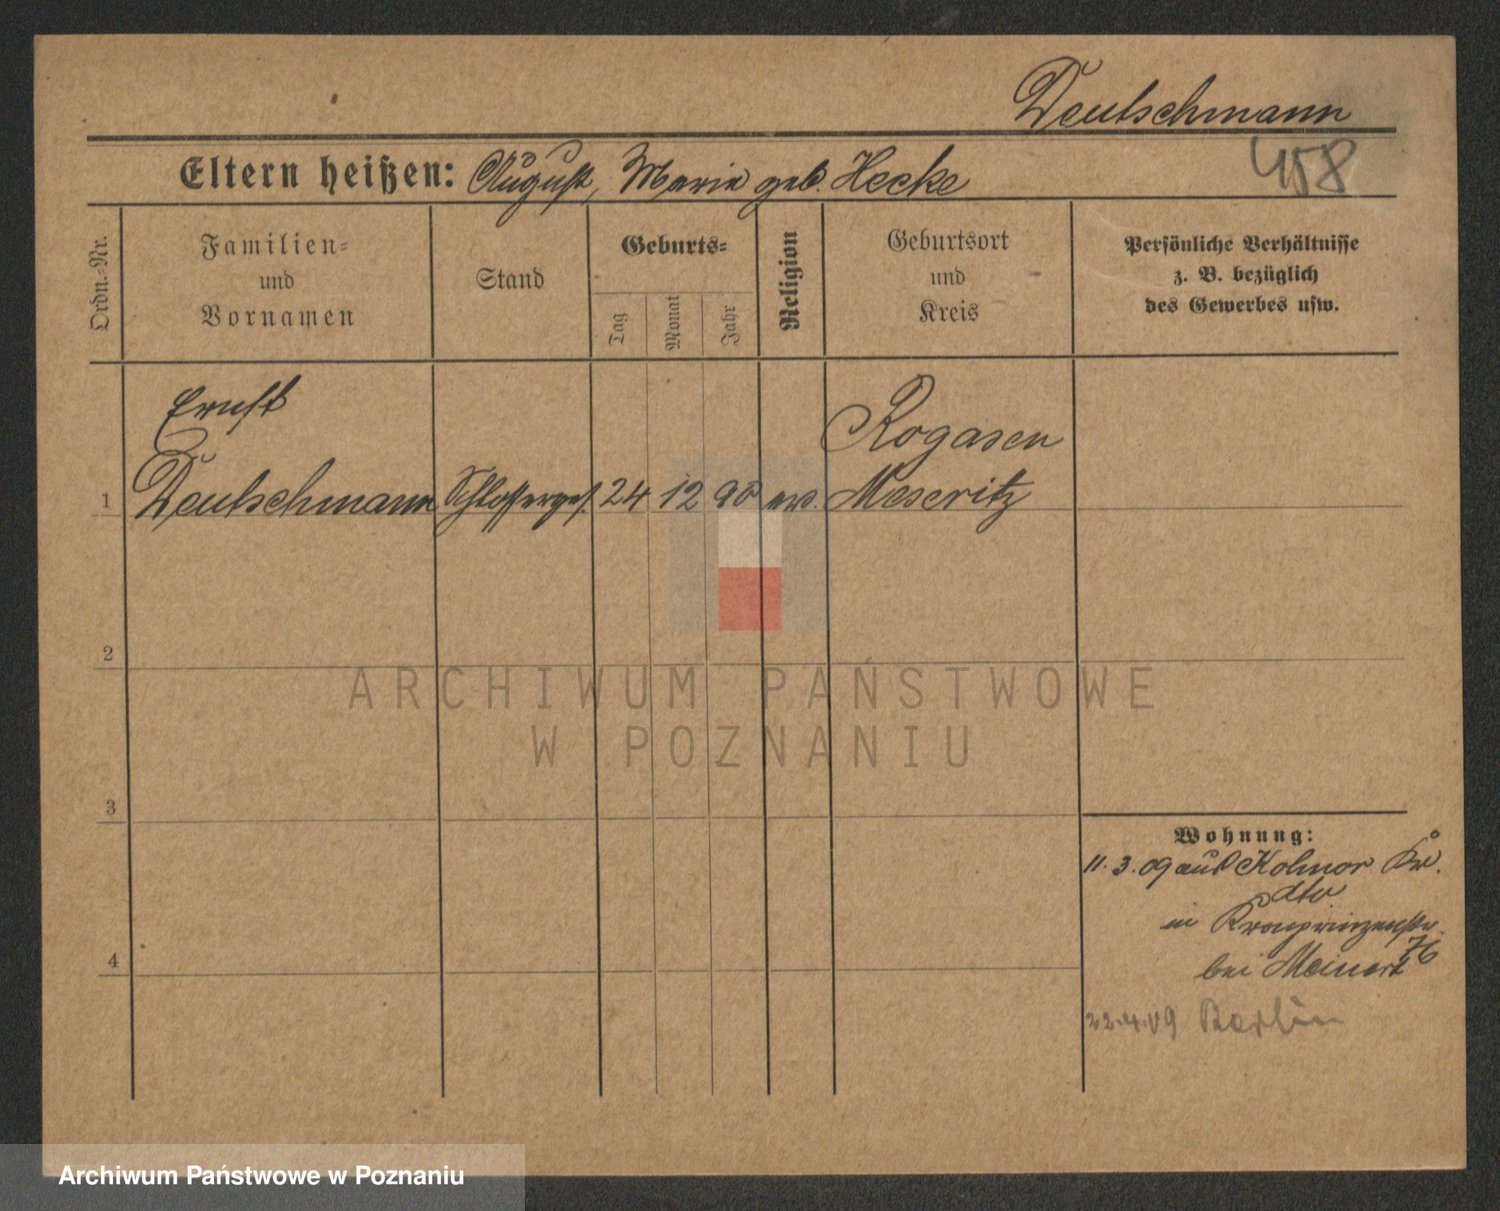 Deutschmann
458
Eltern heißen: August, Marie geb. Hecke
Ordn.-Nr.
Familien-
und
Vornamen
Stand
Geburts-
Tag
Monat
Jahr
Religion
Geburtsort
und
Kreis
Persönliche Verhältnisse
z. B. bezüglich
des Gewerbes usw.
Ernst
Rogasen
1 Deutschmann Schlosserges. 24 12 90 ev. Meseritz
2
ARCHIWUM PAŃSTWOWE
W POZNANIU
3
4
Wohnung:
11.3.09 aus Kolmar
dto
in Kronprinzenstr.
76
bei Meinert
22.4.09 Berlin
Archiwum Państwowe w Poznaniu